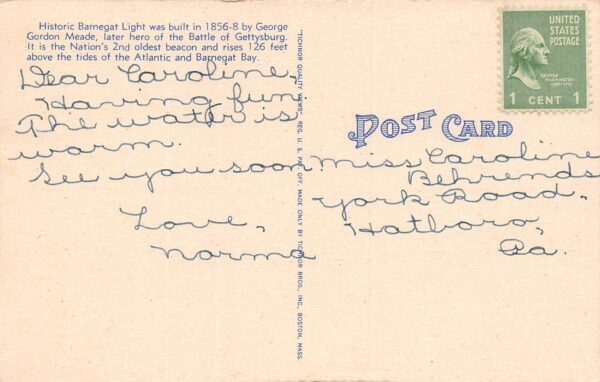 Historic Barnegat Light was built in 1856-8 by George
Gordon Meade, later hero of the Battle of Gettysburg.
It is the Nation's 2nd oldest beacon and rises 126 feet
above the tides of the Atlantic and Barnegat Bay.
Dear Caroline,
Having fun.
The water is
warm.
See you soon.
Love,
Norma
"TICHNOR QUALITY VIEWS" REG. U. S. PAT. OFF. MADE ONLY BY TICHNOR BROS., INC., BOSTON, MASS.
UNITED
STATES
POSTAGE
GEORGE
WASHINGTON
1 CENT 1
POST CARD
Miss Caroline
Behrends
York Road,
Hatboro,
Pa.